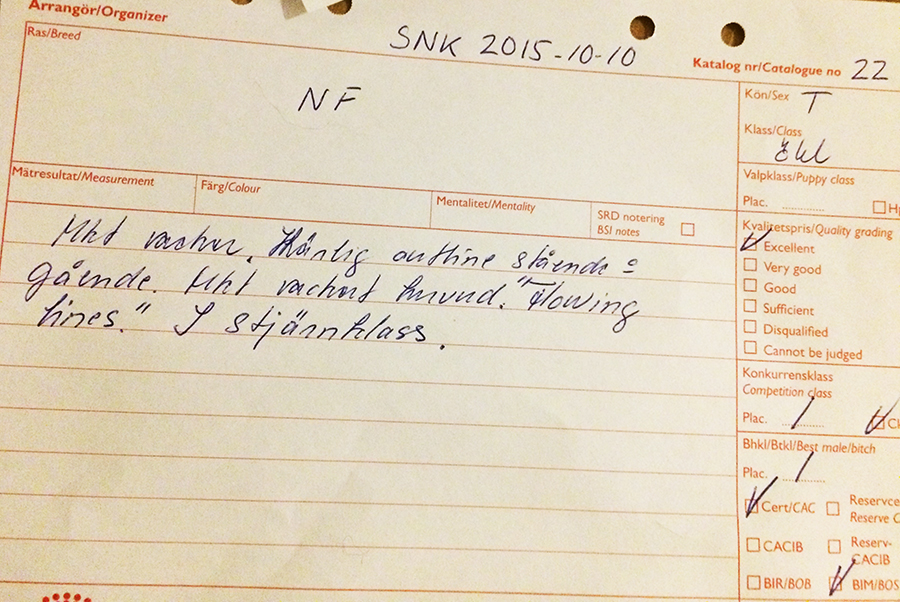 Arrangör/Organizer
SNK 2015-10-10
Katalog nr/Catalogue no 22
Ras/Breed
NF
Kön/Sex T
Klass/Class
Ökl
Valpklass/Puppy class
Plac.
Mätresultat/Measurement
Färg/Colour
Mentalitet/Mentality
SRD notering
BSI notes
Kvalitetspris/Quality grading
Excellent
Very good
Good
Sufficient
Disqualified
Cannot be judged
Mkt vacker. Härlig outline stående o
gående. Mkt vackert huvud. "Flowing
lines." I stjärnklass.
Konkurrensklass
Competition class
Plac. 1
Bhkl/Btkl/Best male/bitch
Plac. 1
Cert/CAC
Reserve C
CACIB
Reserv-
CACIB
BIR/BOB
BIM/BOS